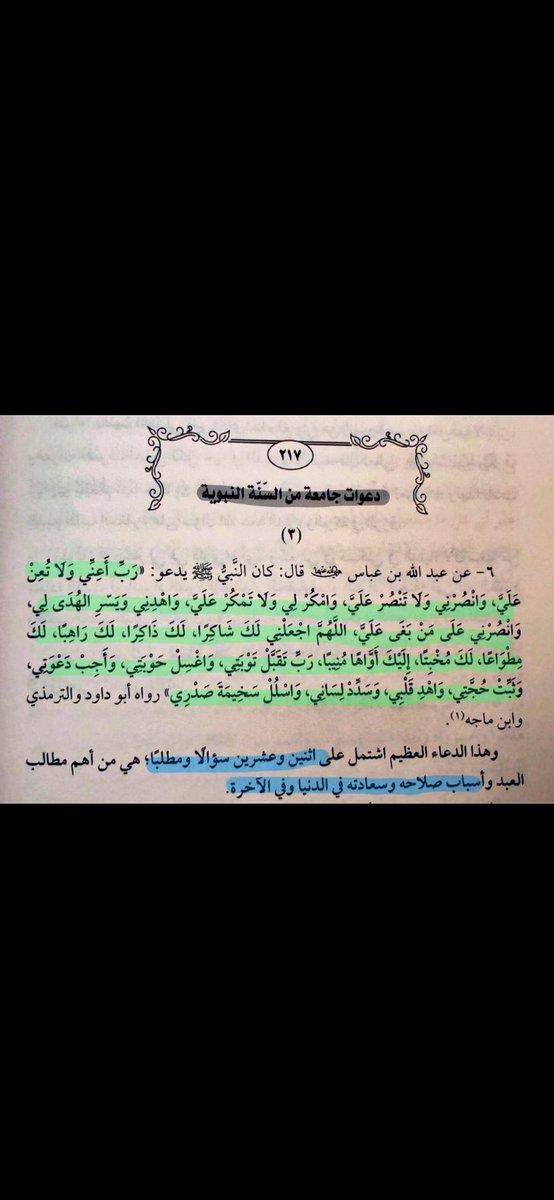 ٢١٧
دعوات جامعة من السّنّة النبوية
(٣)
٦- عن عبد الله بن عباس رضي الله عنهما قال: كان النَّبيُّ ﷺ يدعو: «رَبِّ أَعِنِّي وَلَا تُعِنْ
عَلَيَّ، وَانْصُرْنِي وَلَا تَنْصُر عَلَيَّ، وَامْكُر لِي وَلَا تَمْكُر عَلَيَّ، وَاهْدِنِي وَيَسّرِ الهُدَى لِي،
وَانْصُرْنِي عَلَى مَنْ بَغَى عَلَيَّ، اللَّهُمَّ اجْعَلْنِي لَكَ شَاكِرًا، لَكَ ذَاكِرًا، لَكَ رَاهِبًا، لَكَ
مِطْوَاعًا، لَكَ مُخْبِتًا، إِلَيْكَ أَوَّاهًا مُنِيبًا، رَبِّ تَقَبَّل تَوْبَتِي، وَاغْسِل حَوْبَتِي، وَأَجِبْ دَعْوَتِي،
وَثَبِّتْ حُجَّتِي، وَاهْدِ قَلْبِي، وَسَدِّدْ لِسَانِي، وَاسْلُلْ سَخِيمَةَ صَدْرِي» رواه أبو داود والترمذي
وابن ماجه(١).
وهذا الدعاء العظيم اشتمل على اثنين وعشرين سؤالًا ومطلبًا؛ هي من أهم مطالب
العبد وأسباب صلاحه وسعادته في الدنيا وفي الآخرة.